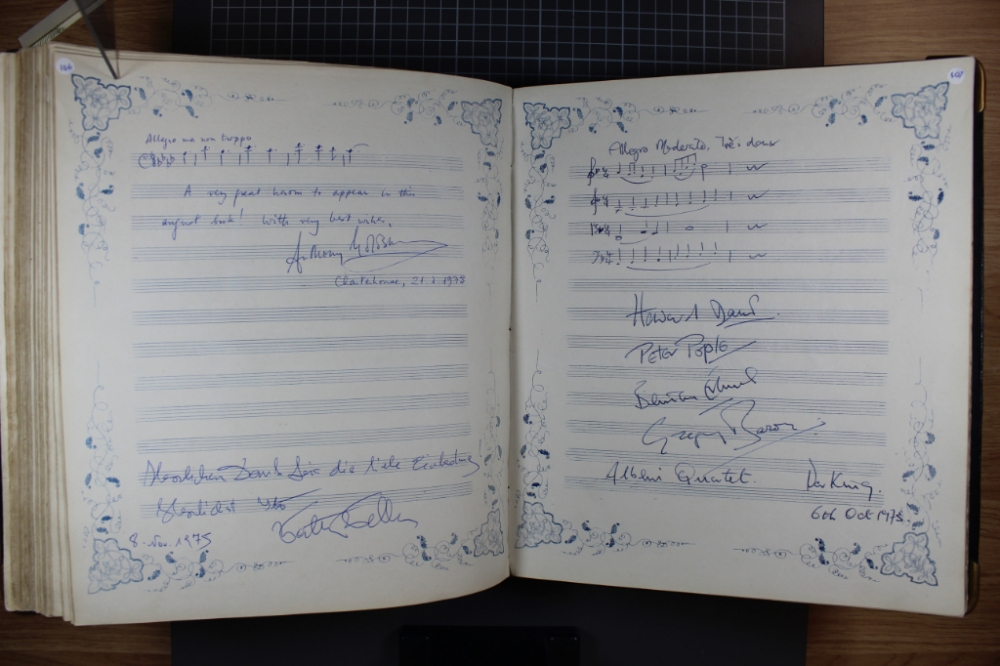 Allegro ma non troppo
A very great honour to appear in this
august book! With very best wishes,
Anthony
Charterhouse, 21.1.1978
Herzlichen Dank für die liebe Einladung
8. Nov. 1975
Allegro Moderato.
Howard Davis
Peter Pople
Berian Evans
Gregory Baron
Alberni Quartet.
Dorking.
6th Oct 1978.